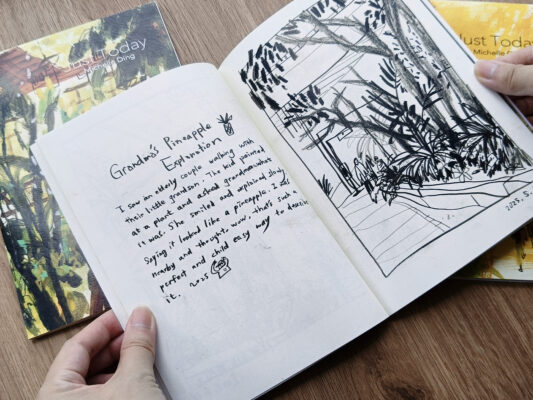 Just Today
Michelle Ding
Just Today
Michelle
Grandma's Pineapple
Explanation
I saw an elderly couple walking with
their little grandson. The kid pointed
at a plant and asked grandma what
it was. She smiled and explained slowly,
Saying it looked like a pineapple. I was
nearby and thought, wow, that's such a
perfect and child easy way to describe
it. 2025
2025. 5.